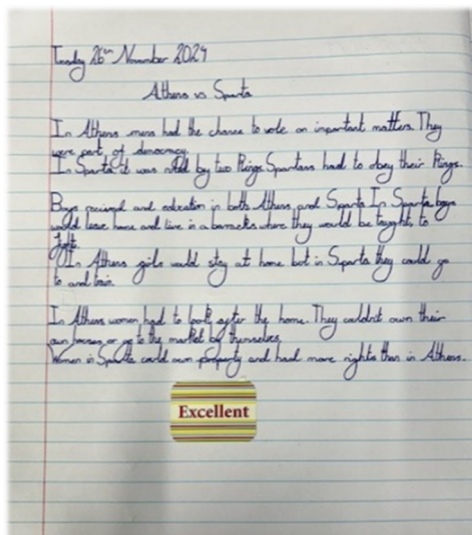 Tuesday 26th November 2024
Athens vs Sparta
In Athens mens had the chance to vote on important matters. They
were part of democracy.
In Sparta it was ruled by two Kings. Spartans had to obey their Kings.
Boys recived and education in both Athens and Sparta In Sparta boys
would leave home and live in a barracks where they would be taught to
fight.
In Athens girls would stay at home but in Sparta they could go
to and train.
In Athens women had to look after the home. They couldn't own their
own houses or go to the market by themselves.
Women in Sparta could own property and had more rights than in Athens.
Excellent